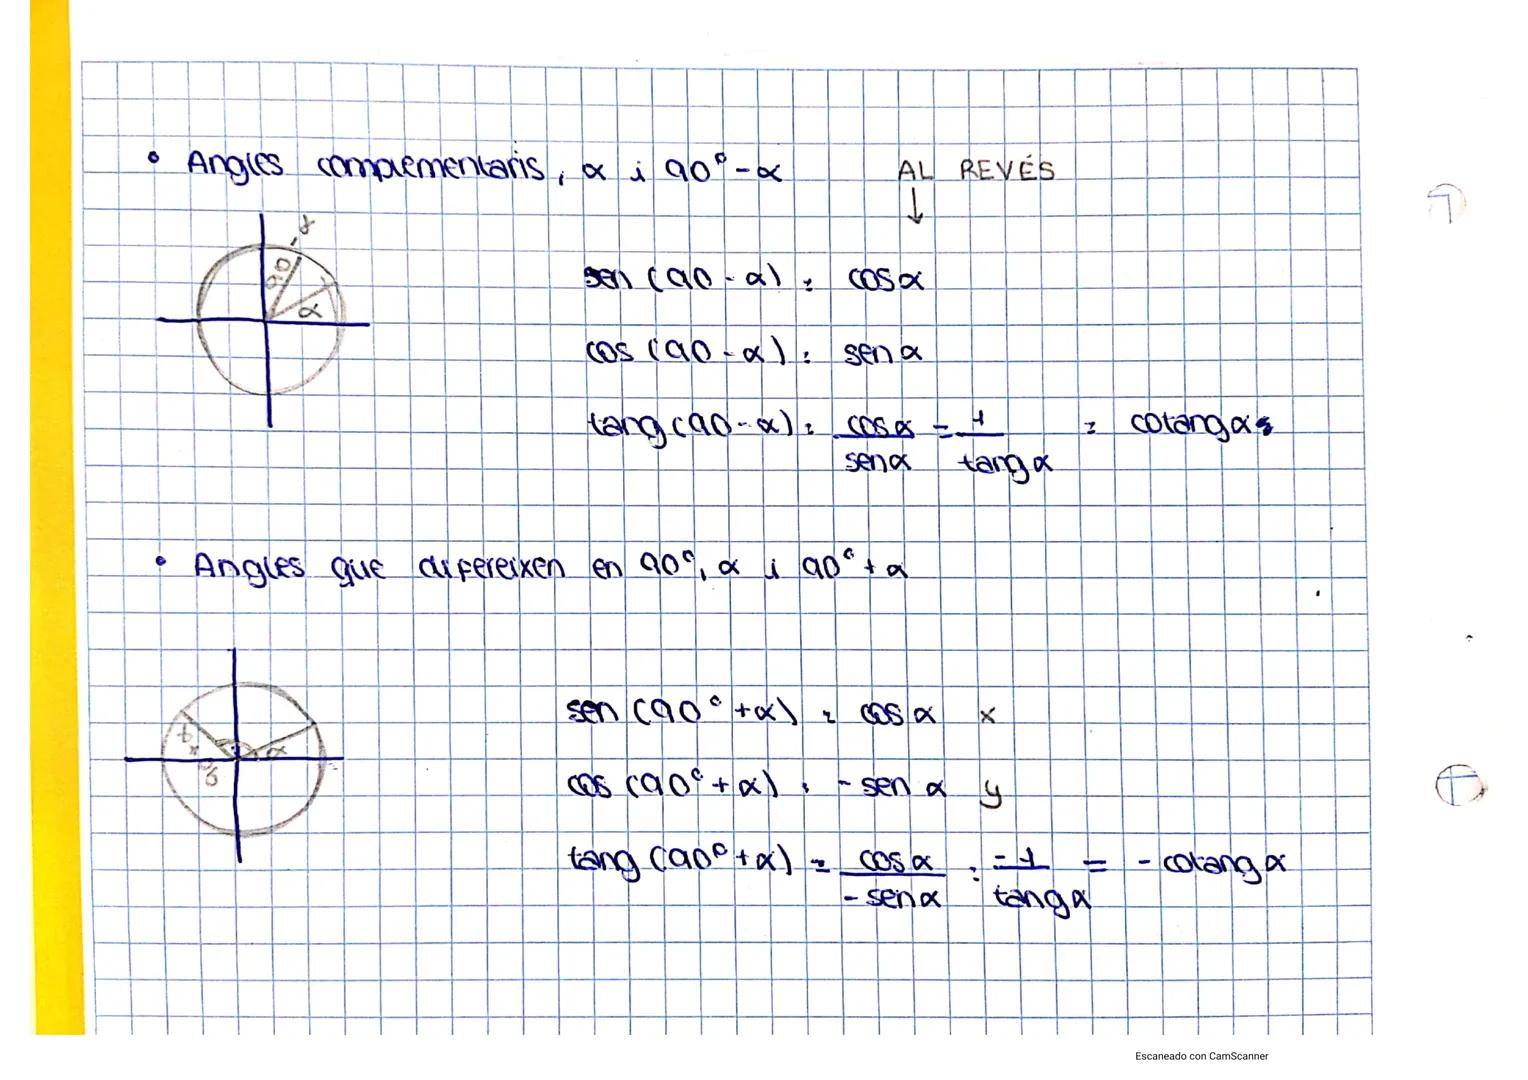 • Angles complementaris, α i 90° - α
AL REVÉS
↓
90 - α
α
sen (90 - α) = cos α
cos (90 - α) = sen α
tang (90 - α) = cos α / sen α = 1 / tang α = cotang α
• Angles que difereixen en 90°, α i 90° + α
α
sen (90° + α) = cos α x
cos (90° + α) = - sen α y
tang (90° + α) = cos α / - sen α = -1 / tang α = - cotang α
Escaneado con CamScanner